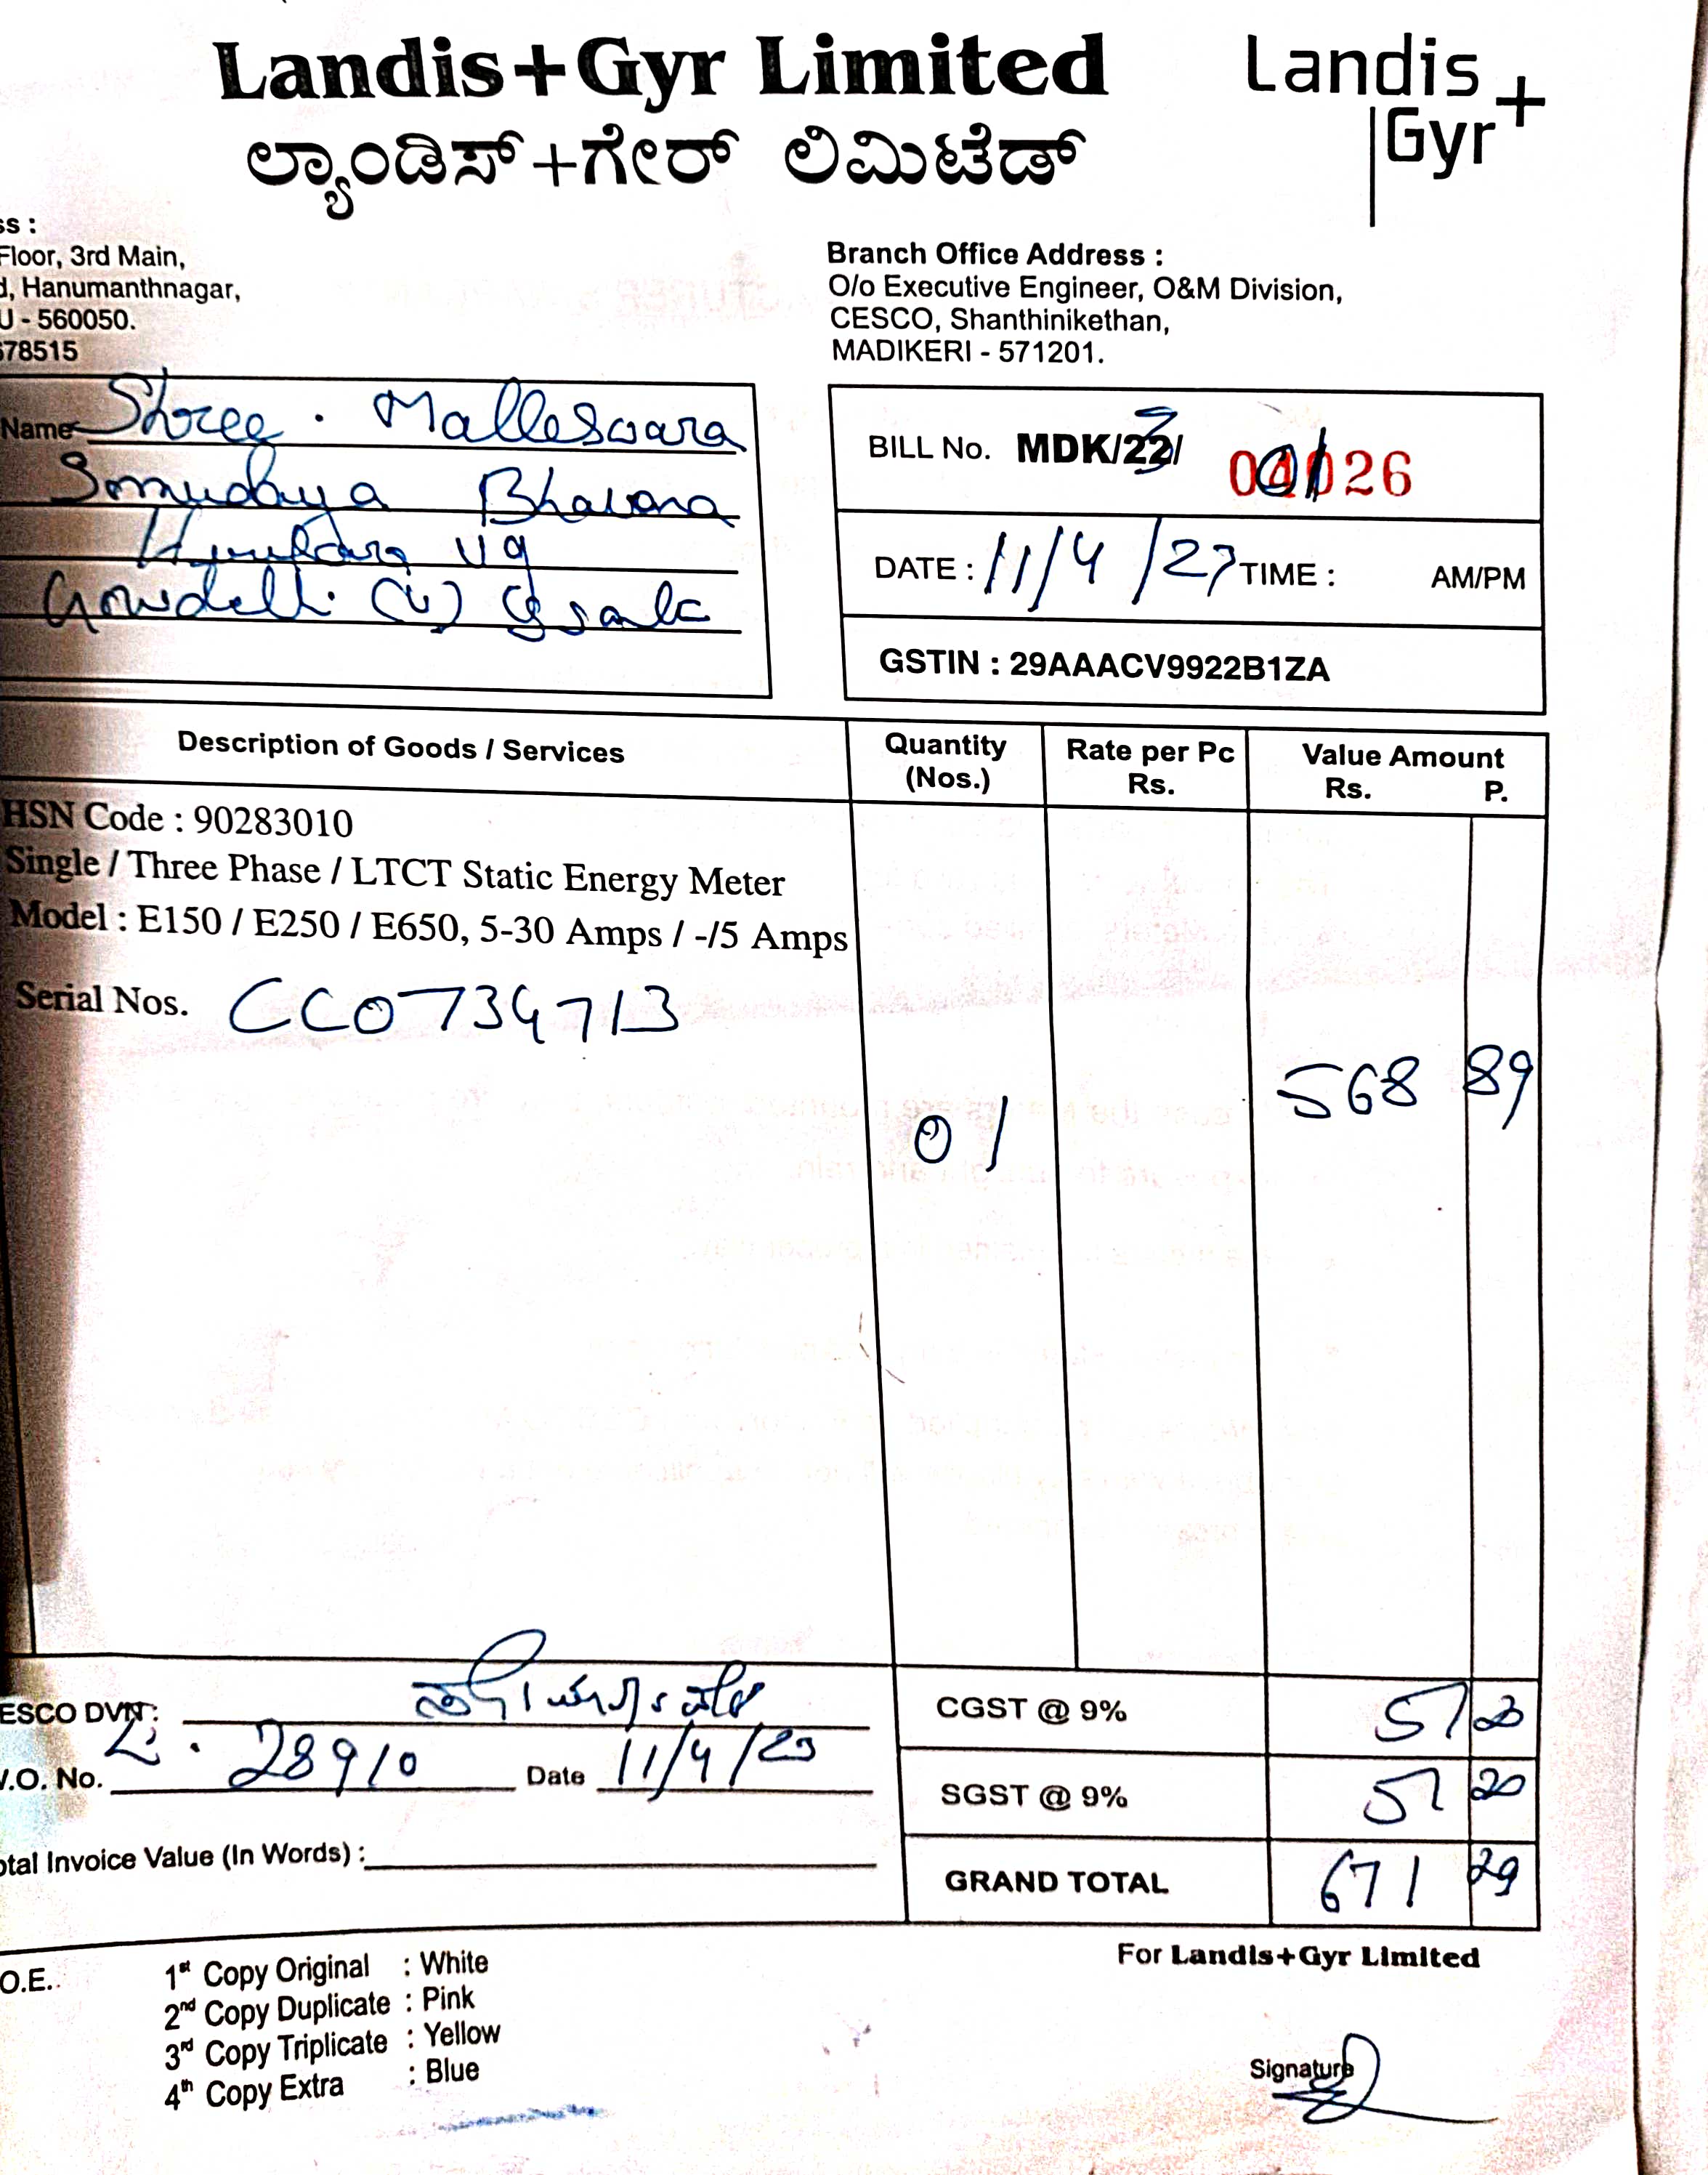 Landis+Gyr Limited
Landis
+
Gyr
ಲ್ಯಾಂಡಿಸ್+ಗೇರ್ ಲಿಮಿಟೆಡ್
ss :
Floor, 3rd Main,
d, Hanumanthnagar,
U - 560050.
678515
Branch Office Address :
O/o Executive Engineer, O&M Division,
CESCO, Shanthinikethan,
MADIKERI - 571201.
Name Shree . Malleswara
Samudaya Bhavana
Gowdelli
BILL No. MDK/23/ 026
DATE : 11/4/23 TIME : AM/PM
GSTIN : 29AAACV9922B1ZA
Description of Goods / Services
Quantity (Nos.)
Rate per Pc Rs.
Value Amount Rs. P.
HSN Code : 90283010
Single / Three Phase / LTCT Static Energy Meter
Model : E150 / E250 / E650, 5-30 Amps / -/5 Amps
Serial Nos. CC0734713
01
568 89
ESCO DVN:
V.O. No. 28910 Date 11/4/23
otal Invoice Value (In Words) :
CGST @ 9% 51 20
SGST @ 9% 51 20
GRAND TOTAL 671 29
O.E.
1st Copy Original : White
2nd Copy Duplicate : Pink
3rd Copy Triplicate : Yellow
4th Copy Extra : Blue
For Landis+Gyr Limited
Signature